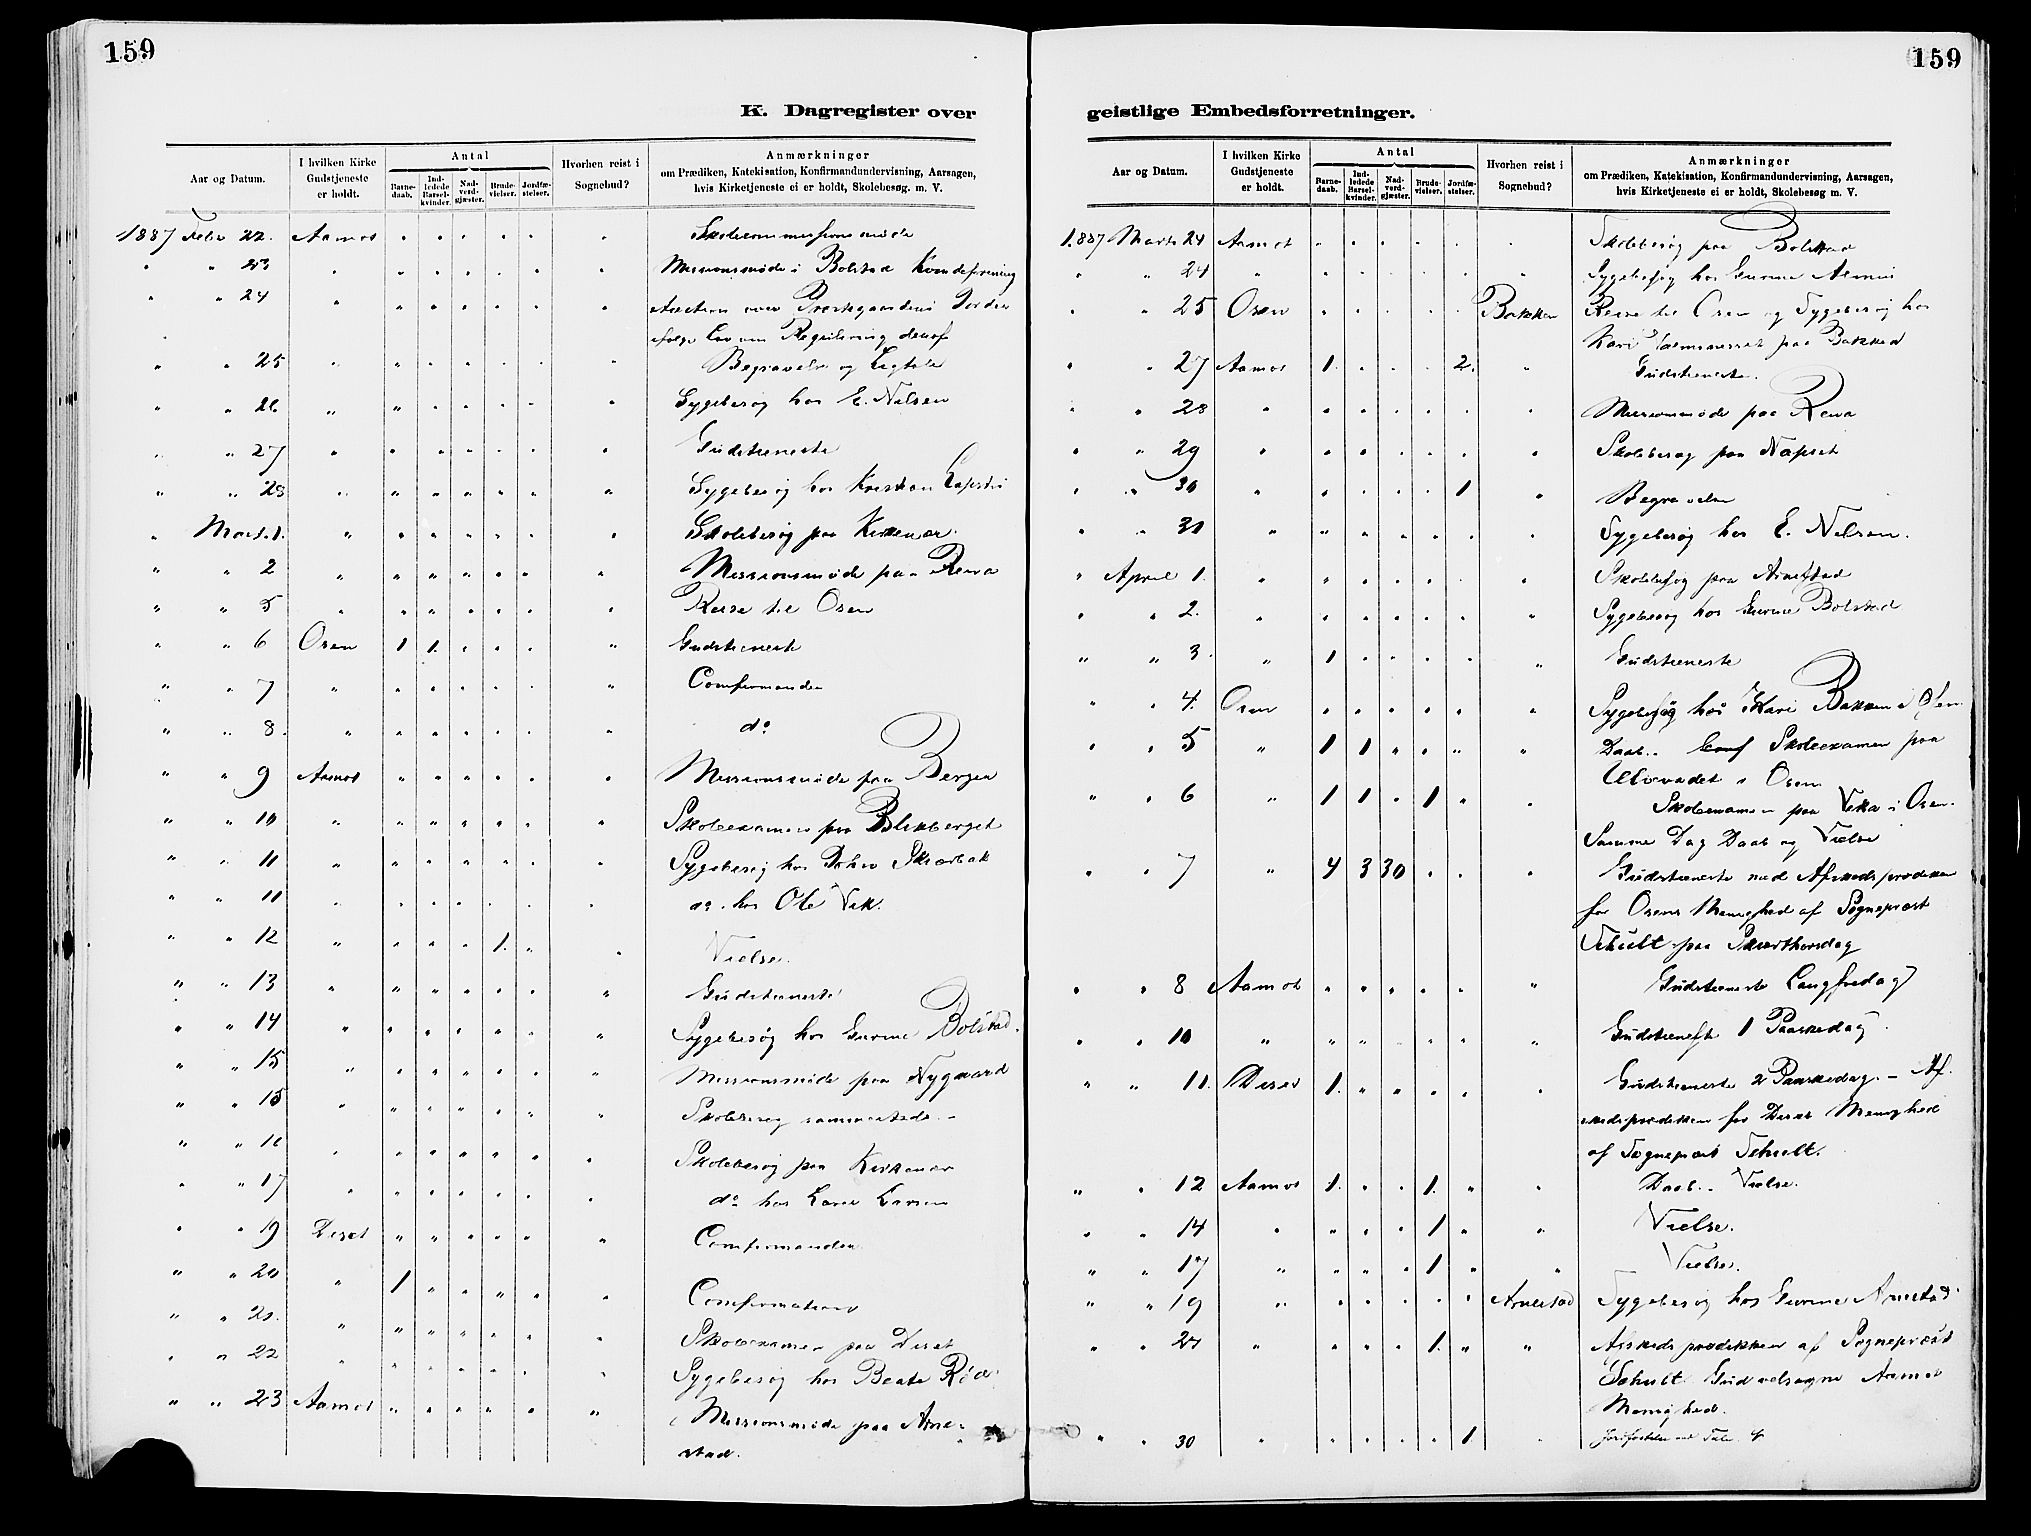 159
K. Dagregister over
Aar og Datum.
I hvilken Kirke Gudstjeneste er holdt.
Antal
Barne-daab.
Ind-ledede Barsel-kvinder.
Nad-verd-gjæster.
Brude-vielser.
Jordfæ-stelser.
Hvorhen reist i Sognebud?
Anmærkninger
om Prædiken, Katekisation, Konfirmandundervisning, Aarsagen,
hvis Kirketjeneste ei er holdt, Skolebesøg m. V.
1887 Febr 22. Aamot " " " " " " Skolecommissionsmøde
" " 23 " " " " " " " Missionsmøde i Bolstad Kvindeforening
" " 24 " " " " " " " Auction over Præstegaardens Jorder
ifølge Lov om Regulering deraf
" " 25 " " " " " " " Begravelse og Ligtale
" " 26 " " " " " " " Sygebesøg hos E. Nilsen
" " 27 " " " " " " " Gudstieneste
" " 28 " " " " " " " Sygebesøg hos Kristian
" Marts 1. " " " " " " " Skolebesøg paa Kirkenær
" " 2 " " " " " " " Missionsmøde paa Rena
" " 5 " " " " " " " Reise til Osen
" " 6 Osen 1 1. " " " " Gudstieneste
" " 7 " " " " " " " Confirmander
" " 8. " " " " " " " do
" " 9 Aamot " " " " " " Missionsmøde paa Berger
" " 10 " " " " " " " Skoleexamen paa Blikberget
" " 11 " " " " " " " Sygebesøg hos John Skiærbæk
" " 11 " " " " " " " do. hos Ole Vik.
" " 12 " " " " 1. " " Vielse.
" " 13 " " " " " " " Gudstieneste
" " 14 " " " " " " " Sygebesøg hos Gurine Bolstad.
" " 15 " " " " " " " Missionsmøde paa Nygaard
" " 15 " " " " " " " Skolebesøg sammesteds. -
" " 16 " " " " " " " Skolebesøg paa Kirkenær
" " 17 " " " " " " " do hos Larsen
" " 19 Deset " " " " " " Confirmander
" " 20 " 1 " " " " " Confirmation
" " 21. " " " " " " " Skoleexamen paa Deset
" " 22 " " " " " " " Sygebesøg hos Beate
" " 23 Aamot " " " " " " Missionsmøde paa Arne-
stad.
159
geistlige Embedsforretninger.
Aar og Datum.
I hvilken Kirke Gudstjeneste er holdt.
Antal
Barne-daab.
Ind-ledede Barsel-kvinder.
Nad-verd-gjæster.
Brude-vielser.
Jordfæ-stelser.
Hvorhen reist i Sognebud?
Anmærkninger
om Prædiken, Katekisation, Konfirmandundervisning, Aarsagen,
hvis Kirketjeneste ei er holdt, Skolebesøg m. V.
1887 Marts 24 Aamot " " " " " " Skolebesøg paa Bolstad
" " 24 " " " " " " " Sygebesøg hos Gurine
" " 25 Osen " " " " " Bakken Reise til Osen og Sygebesøg hos
Kari paa Bakken
" " 27 Aamot 1. " " " 2. " Gudstieneste.
" " 28 " " " " " " " Missionsmøde paa Rena
" " 29 " " " " " " " Skolebesøg paa Næpset
" " 30 " " " " " 1 " Begravelse
" " 31 " " " " " " " Sygebesøg hos E. Nilsen.
" April 1. " " " " " " " Skolebesøg paa Arnestad
" " 2. " " " " " " " Sygebesøg hos Gurine Bolstad
" " 3. " 1 " " " " " Gudstieneste
" " 4. Osen " " " " " " Sygebesøg hos Kari Bakken i Osen
" " 5 " 1 1 " " " " Daab. Skoleexamen paa
Ulvevadet i Osen
" " 6 " 1 1 " 1. " " Skoleexamen paa Vika i Osen.
Samme Dag Daab og Vielse
" " 7 " 4 3 30 " " " Gudstieneste med Afskedsprædiken
for Osens Menighed af Sognepræst
Schult paa Skiærthorsdag
" " 8 Aamot " " " " " " Gudstieneste Langfredag
" " 10 " " " " " " " Gudstieneste 1 Paaskedag.
" " 11. Deset 1. " " " " " Gudstieneste 2 Paaskedag. - Af-
skedsprædiken for Deset Menighed
af Sognepræst Schult.
" " 12 Aamot 1. " " 1. " " Daab. - Vielse.
" " 14 " " " " 1 " " Vielse.
" " 17 " " " " 1. " " Vielse.
" " 19 " " " " " " Arnestad Sygebesøg hos Gurine Arnestad
" " 24 " " " " 1. " " Afskedsprædikken af Sognepræst
Schult. Gud velsigne Aamot
Menighed.
" " 30 " " " " " 1. "